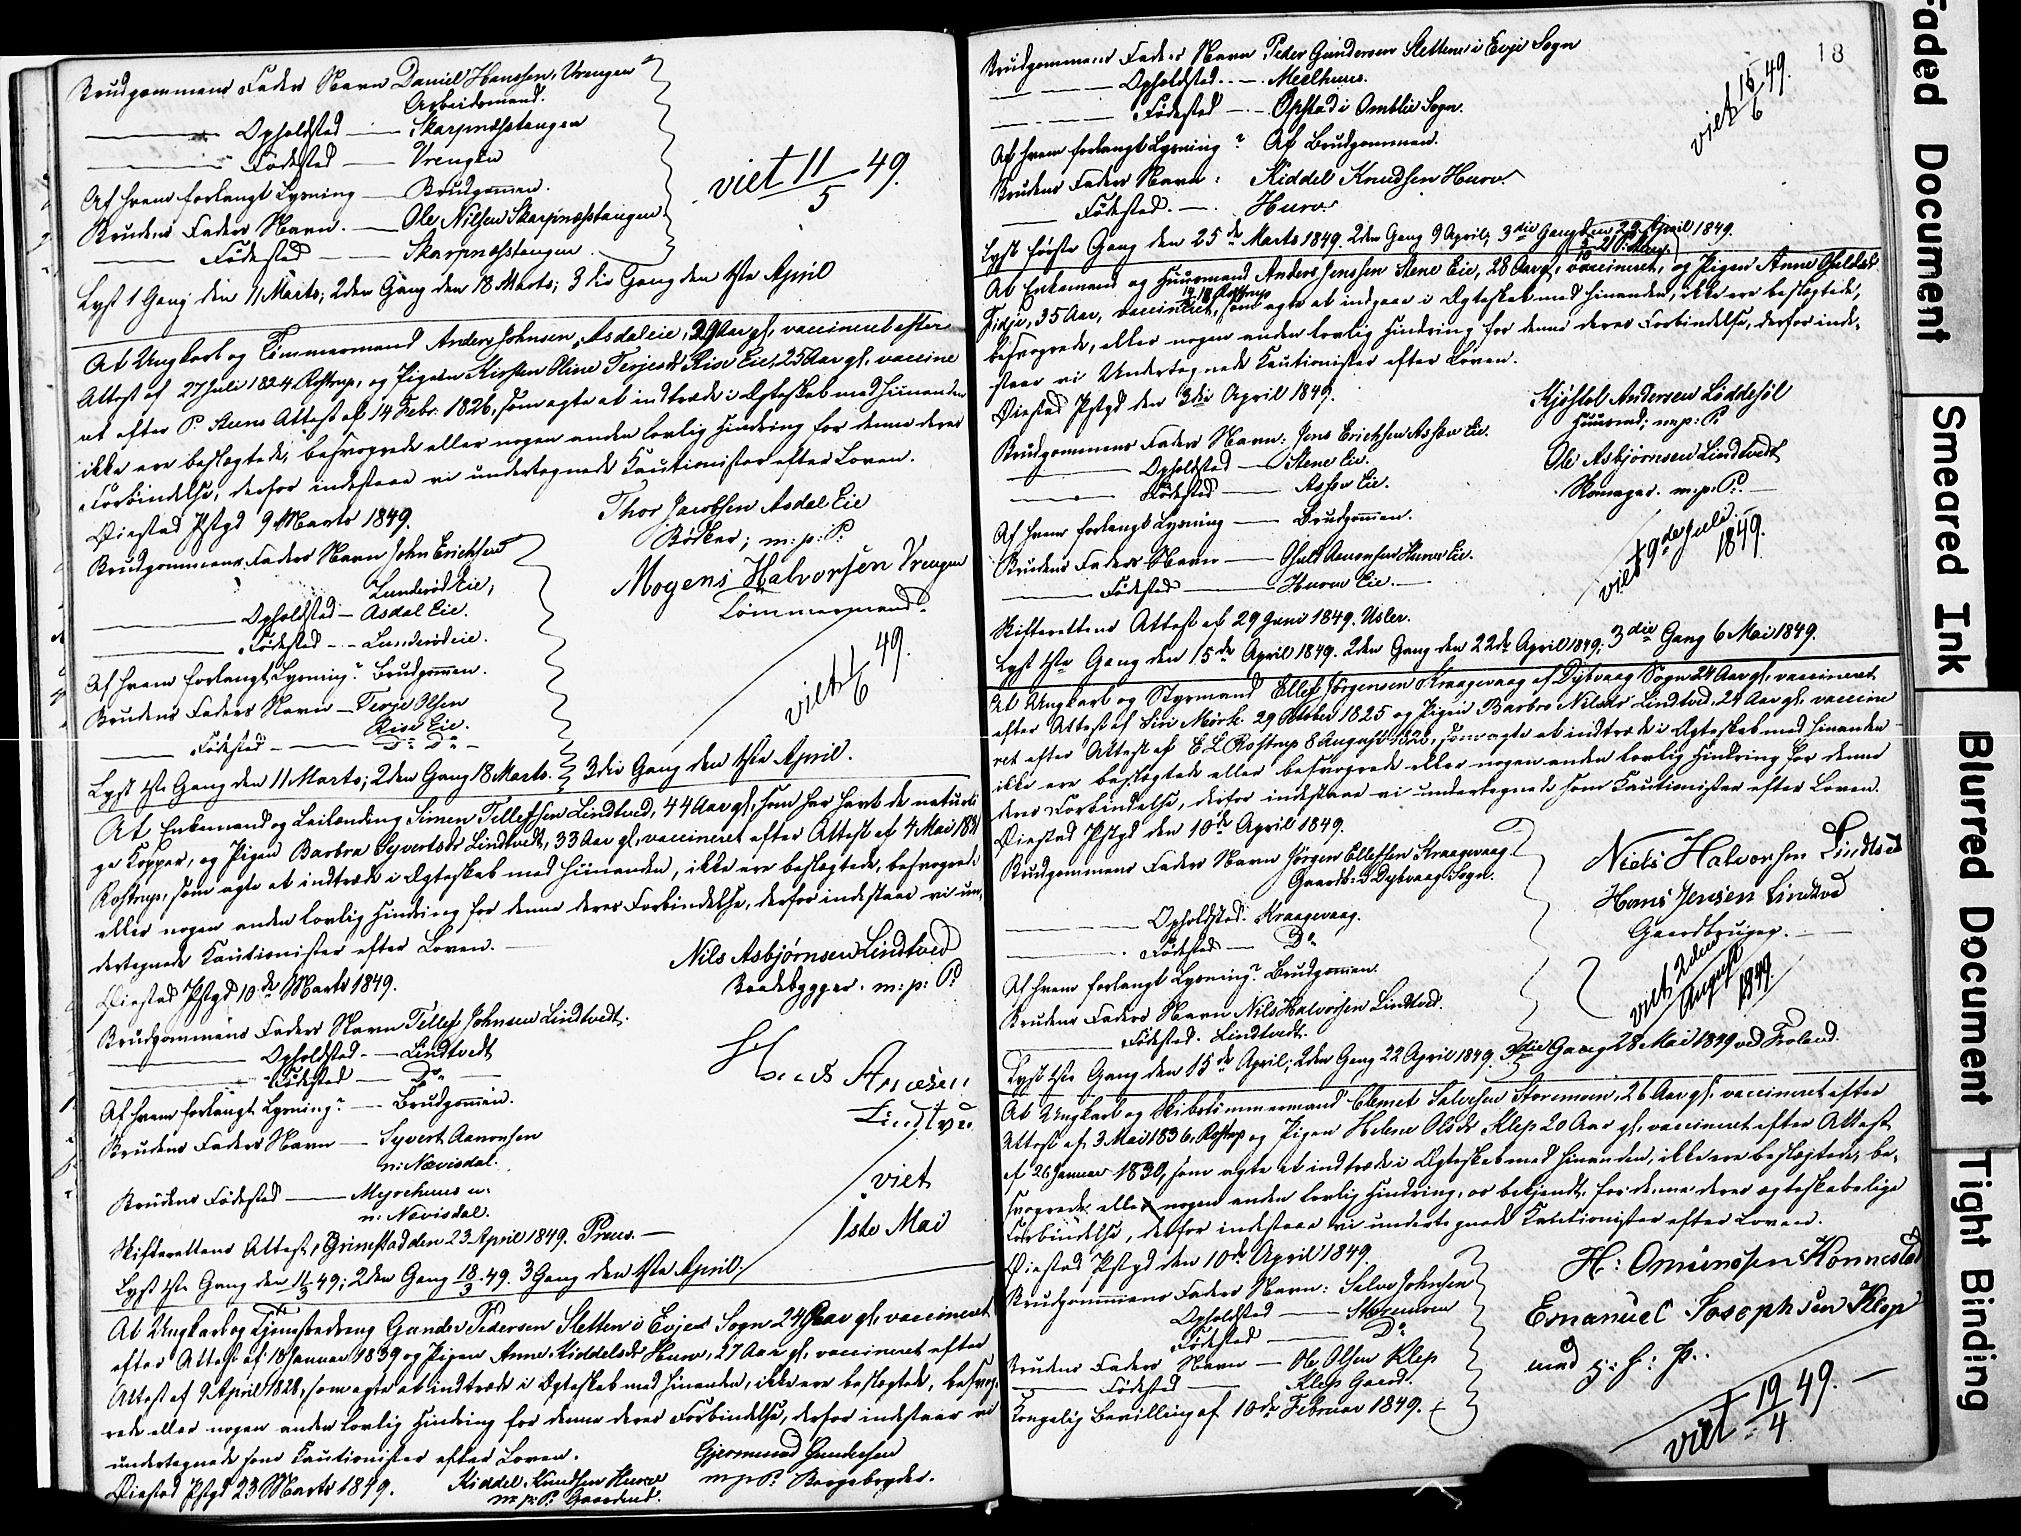 Brudgommens Faders Navn Daniel Hanssen, Vrengen
Arbeidsmand.
Opholdsted — Skarpnæsstangen
Fødested — Vrengen
Af hvem forlangt Lysning — Brudgommen.
Brudens Faders Navn. — Ole Nilsen Skarpnæsstangen.
Fødested — Skarpnæsstangen
viet 11/5 49.
Lyst 1 Gang den 11 Marts; 2den Gang den 18 Marts; 3die Gang den 1ste April
At Ungkarl og Tømmermand Anders Johnsen, Asdal eie, 29 Aar gl, vaccineret efter
Attest af 27 Juli 1824 Rostrup, og Pigen Kirsten Oline Terjesdr Rise Eie, 25 Aar gl, vaccine
ret efter P. Attest af 14 Febr. 1826, som agte at indtræde i Ægteskab med hinanden
ikke ere beslægtede, besvogrede eller nogen anden lovlig Hindring for denne deres
Forbindelse, derfor indestaae vi undertegnede Kautionister efter Loven.
Øiestad Pstgd 9 Marts 1849.
Thor Jacobsen Asdal Eie
Bødker; m: p: P.
Brudgommens Faders Navn John Erichsen
Lunderød Eie,
Mogens Halvorsen Vrengen
Tømmermand.
Opholdsted — Asdal Eie.
Fødested — Lunderød eie.
Af hvem forlangt Lysning? Brudgommen.
Brudens Faders Navn — Terje Olsen
Rise Eie.
Fødested — Do Do —
viet 1/6 49.
Lyst 1ste Gang den 11 Marts; 2den Gang 18 Marts. 3die Gang den 1ste April.
At Enkemand og Leilænding Simon Tellefsen Lindtved, 44 Aar gl, som har havt de naturli
ge Kopper, og Pigen Barbra Syvertsdr Lindtvedt, 33 Aar gl, vaccineret efter Attest af 4 Mai
Rostrup, som agte at indtræde i Ægteskab med hinanden, ikke ere beslægtede, besvogrede
eller nogen anden lovlig Hindring for denne deres Forbindelse, derfor indestaae vi un-
dertegnede Kautionister efter Loven. —
Øiestad Pstgd 10de Marts 1849.
Nils Asbjørnsen Lindtved
Baadebygger. m: p: P.
Brudgommens Faders Navn Tellef Johnsen Lindtvedt.
Opholdsted — Lindtvedt
Fødested — Do
Af hvem forlangt Lysning? — Brudgommen.
Brudens Faders Navn — Syvert Aanonsen
n: Nævisdal.
Brudens Fødested — Myrehuus u.
n: Nævisdal.
viet
1ste Mai
Skifterettens Attest, Grimstad den 23 April 1849. Preus. —
Lyst 1ste Gang den 11/3 49; 2den Gang 18/3 49. 3 Gang den 1ste April.
At Ungkarl og Tjenestedreng Gunder Pedersen Sletten i Evje Sogn 24 Aar gl, vaccineret
efter Attest af 18 Januar 1839 og Pigen Anne Kiddelsdr Hurv, 27 Aar gl, vaccineret efter
Attest af 9 April 1828, som agte at indtræde i Ægteskab med hinanden, ikke ere beslægtede, besvog-
rede eller nogen anden lovlig Hindring for denne deres Forbindelse, derfor indestaae vi
undertegnede som Kautionister efter Loven.
Øiestad Pstgd 23 Marts 1849.
Kiddel Knudsen Hurv
m: p: P. Gaardmd.
Gjermund Gundersen
m p P.
18
Brudgommens Faders Navn Peder Gundersen Sletten i Evje Sogn
Opholdsted — Mælhuus.
Fødested — Opstad i Omblie Sogn.
Af hvem forlangt Lysning? Af Brudgommen.
Brudens Faders Navn: Kiddel Knudsen Hurv.
Fødested. — Hurv.
viet 15/6 49.
Lyst første Gang den 25de Marts 1849. 2den Gang 9 April; 3die Gang den 22 April 1849.
At Enkemand og Huusmand Anders Jenssen Stene Eie, 28 Aar gl, vaccineret, og Pigen Anne
35 Aar, vaccineret, som agte at indgaae i Ægteskab med hinanden, ikke ere beslægtede,
besvogrede, eller nogen anden lovlig Hindring for denne deres Forbindelse, derfor inde-
staae vi Undertegnede Kautionister efter Loven.
Øiestad Pstgd den 3die April 1849.
Kjøstol Andersen Løddesøl
Huusmd; m: p: P.
Brudgommens Faders Navn: Jens Erichsen Assev Eie.
Opholdsted — Stene Eie.
Fødested — Assev Eie.
Ole Asbjørnsen Lindtvedt
m. p. P. —
Af hvem forlangt Lysning — Brudgommen.
Brudens Faders Navn — Aanonsen Hurv Eie.
Fødested — Hurv Eie. —
viet 9de Juli 1849.
Skifterettens Attest af 29 Juni 1849. Usler.
Lyst 1ste Gang den 15de April 1849. 2den Gang den 22de April 1849; 3die Gang 6 Mai 1849.
At Ungkarl og Styrmand Ellef Jørgensen Kraagevaag af Dybvaag Sogn 24 Aar gl, vaccineret
efter Attest af Siri Mørk 29 October 1825 og Pigen Barbro Nilsdr Lindtved, 21 Aar gl, vaccine
ret efter Attest af E L Rostrup 8 August, som agte at indtræde i Ægteskab med hinanden
ikke ere beslægtede eller besvogrede eller nogen anden lovlig Hindring for denne
deres Forbindelse, derfor indestaae vi undertegnede som Kautionister efter Loven.
Øiestad Pstgd den 10de April 1849.
Brudgommens Faders Navn Jørgen Ellefsen Kraagevaag
Gaardb: i Dybvaag Sogn.
Niels Halvorsen Lindtved
Hans Jensen Lindtved
Gaardbruger. —
Opholdsted. Kraagevaag.
Fødested — Do
Af hvem forlangt Lysning? Brudgommen.
Brudens Faders Navn Nils Halvorsen Lindtved.
Fødested. Lindtvedt.
viet 2den August 1849
Lyst 1ste Gang den 15de April; 2den Gang 22 April 1849. 3die Gang 28 Mai 1849 ved Froland.
At Ungkarl og Skibstømmermand Clemet Salvesen Storemoen, 26 Aar gl, vaccineret efter
Attest af 3 Mai 1836, Rostrup og Pigen Helene Olsdr Klep 20 Aar gl, vaccineret efter Attest
af 26 Januar 1830, som agte at indtræde i Ægteskab med hinanden, ikke ere beslægtede, be-
svogrede, eller nogen anden lovlig Hindring, os bekjendt, for denne deres ægteskabelige
Forbindelse, derfor indestaae vi undertegnede Kautionister efter Loven.
Øiestad Pstgd den 10de April 1849.
H: Omundsen Rønnestad
Brudgommens Faders Navn: Salve Johnsen
Opholdsted — Storemoen
Fødested — Do
Emanuel Josephsen Klep
med h: p: P..
Brudens Faders Navn — Ole Olsen Klep
Fødested — Klep Gaard.
Kongelig Bevilling af 10de Februar 1849.
viet 19/4 49. —
Faded Document
Smeared Ink
Blurred Document
Tight Binding